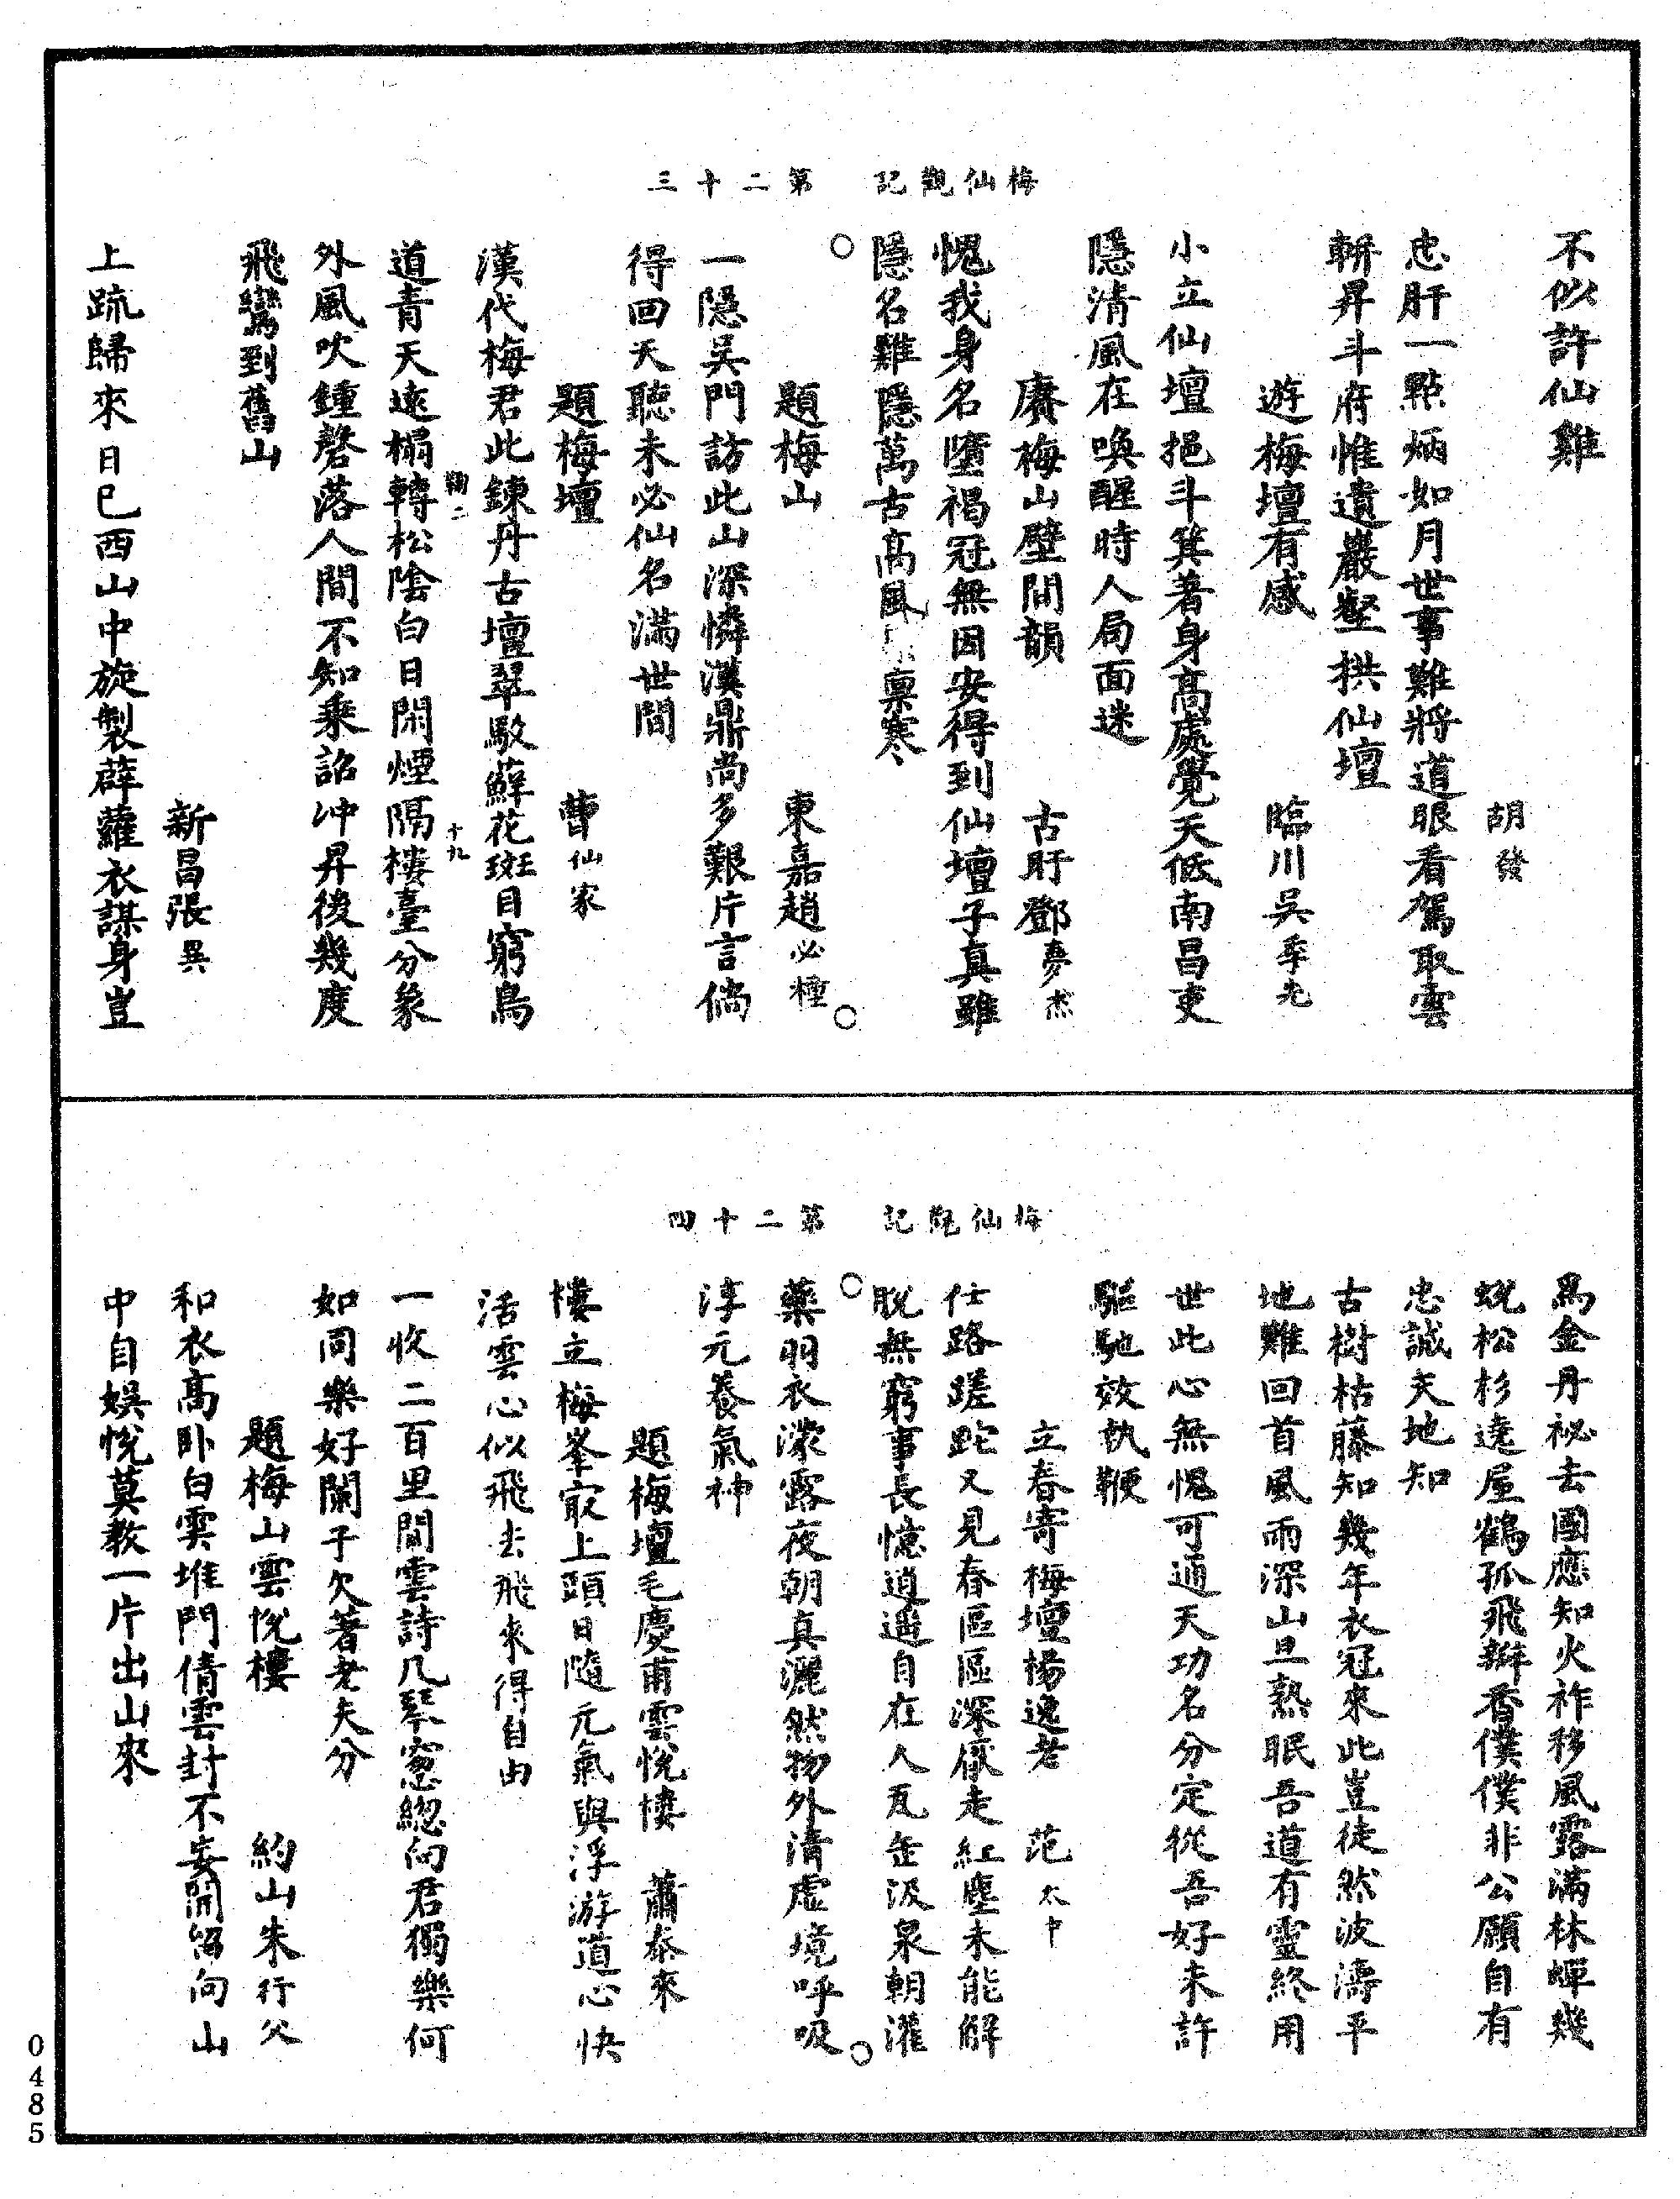 梅仙觀記　第二十三
不似許仙難
胡發
忠肝一點炳如月世事難將道眼看駕取雲
輧昇斗府惟遺巖壑拱仙壇
遊梅壇有感　臨川吳季先
小立仙壇挹斗箕著身高處覺天低南昌吏
隱清風在喚醒時人局面迷
賡梅山壁間韻　古盱鄧夢杰
愧我身名墮褐冠無因安得到仙壇子真雖
隱名難隱萬古高風凛凛寒
題梅山　東嘉趙必穜
一隱吳門訪此山深憐漢鼎尚多艱片言倘
得回天聽未必仙名滿世間
題梅壇　曹仙家
漢代梅君此鍊丹古壇翠駮蘚花斑目窮鳥
鞠二　十九
道青天遠榻轉松陰白日閑煙隔樓臺分象
外風吹鍾磬落人間不知乘詔冲昇後幾度
飛鸞到舊山
新昌張異
上䟽歸來日已西山中旋製薜蘿衣謀身豈
梅仙觀記　第二十四
爲金丹祕去國應知火祚移風露滿林蟬幾
蛻松杉遶屋鶴孤飛瓣香僕僕非公願自有
忠誠天地知
古樹枯藤知幾年衣冠來此豈徒然波濤平
地難回首風雨深山且熟眠吾道有靈終用
世此心無愧可通天功名分定從吾好未許
驅馳效執鞭
立春寄梅壇楊逸老　范太中
仕路蹉跎又見春區區深厭走紅塵未能解
脫無窮事長憶逍遥自在人瓦缶汲泉朝灌
藥羽衣濛露夜朝真灑然物外清虛境呼吸
淳元養氣神
題梅壇毛慶甫雲悅樓　蕭泰來
樓立梅峯㝡上頭日隨元氣與浮游道心快
活雲心似飛去飛來得自由
一收二百里間雲詩几琴窻緫向君獨樂何
如同樂好闌干欠著老夫分
題梅山雲悅樓　約山朱行父
和衣高卧白雲堆門倩雲封不妄開紿向山
中自娛悅莫教一片出山來
0485